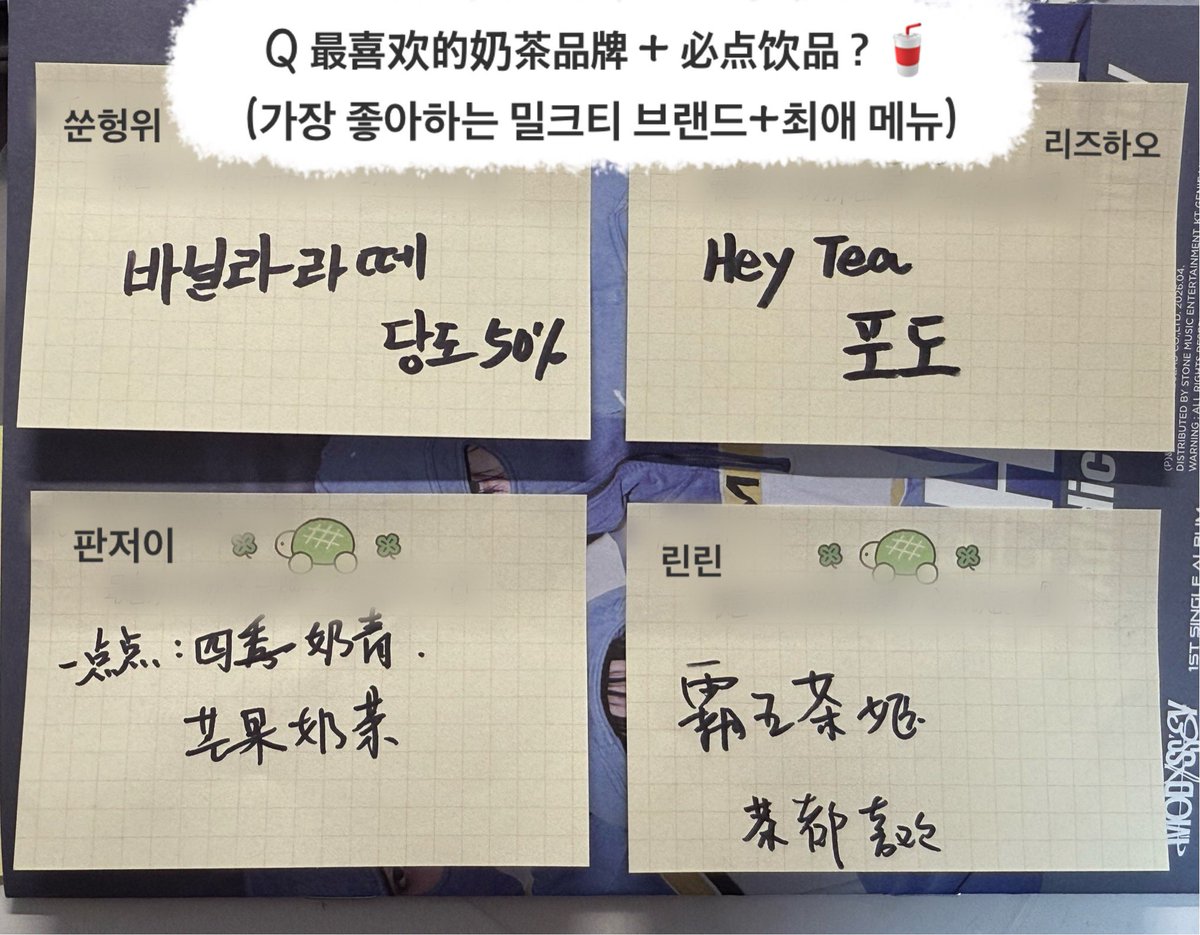 Q 最喜欢的奶茶品牌 + 必点饮品？
(가장 좋아하는 밀크티 브랜드+최애 메뉴)
쑨헝위
바닐라 라떼
당도 50%
리즈하오
Hey Tea
포도
판저이
一点点：四季奶青.
芒果奶茶
린린
霸王茶姬
茶都喜欢
DISTRIBUTED BY STONE MUSIC ENTERTAINMENT, KT GENIE
1ST SINGLE AL